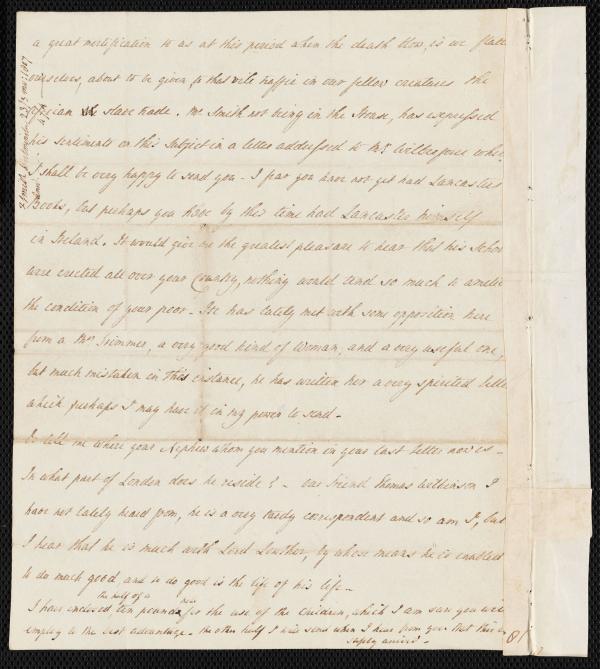 a great mortification to us at this period when the death blow, is we flatter
ourselves, about to be given to that vile traffic in our fellow creatures the
African slave trade. Mr Smith not being in the House, has expressed
his sentiments on this subject in a letter addressed to Mr. Wilberforce which
I shall be very happy to send you - I fear you have not yet had Lancaster's
Books, but perhaps you have by this time had Lancaster himself
in Ireland. It would give me the greatest pleasure to hear that his Schools
were erected all over your Country, nothing would tend so much to amelio
the condition of your poor - He has lately met with some opposition here
from a Mrs Trimmer, a very good kind of Woman, and a very useful one,
but much mistaken in this instance, he has written her a very spirited letter
which perhaps I may have it in my power to send -
Do tell me where your Nephew whom you mention in your last letter now is -
In what part of London does he reside? - our friend Thomas Wilkinson I
have not lately heard from, he is a very tardy correspondent and so am I, but
I hear that he is much with Lord Lowther, by whose means he is enabled
to do much good, and to do good is the life of his life -
I have enclosed, the half of a ten pound note for the use of the Children, which I am sure you will
employ to the best advantage - the other half I will send when I hear from you that this is
safely arrived -